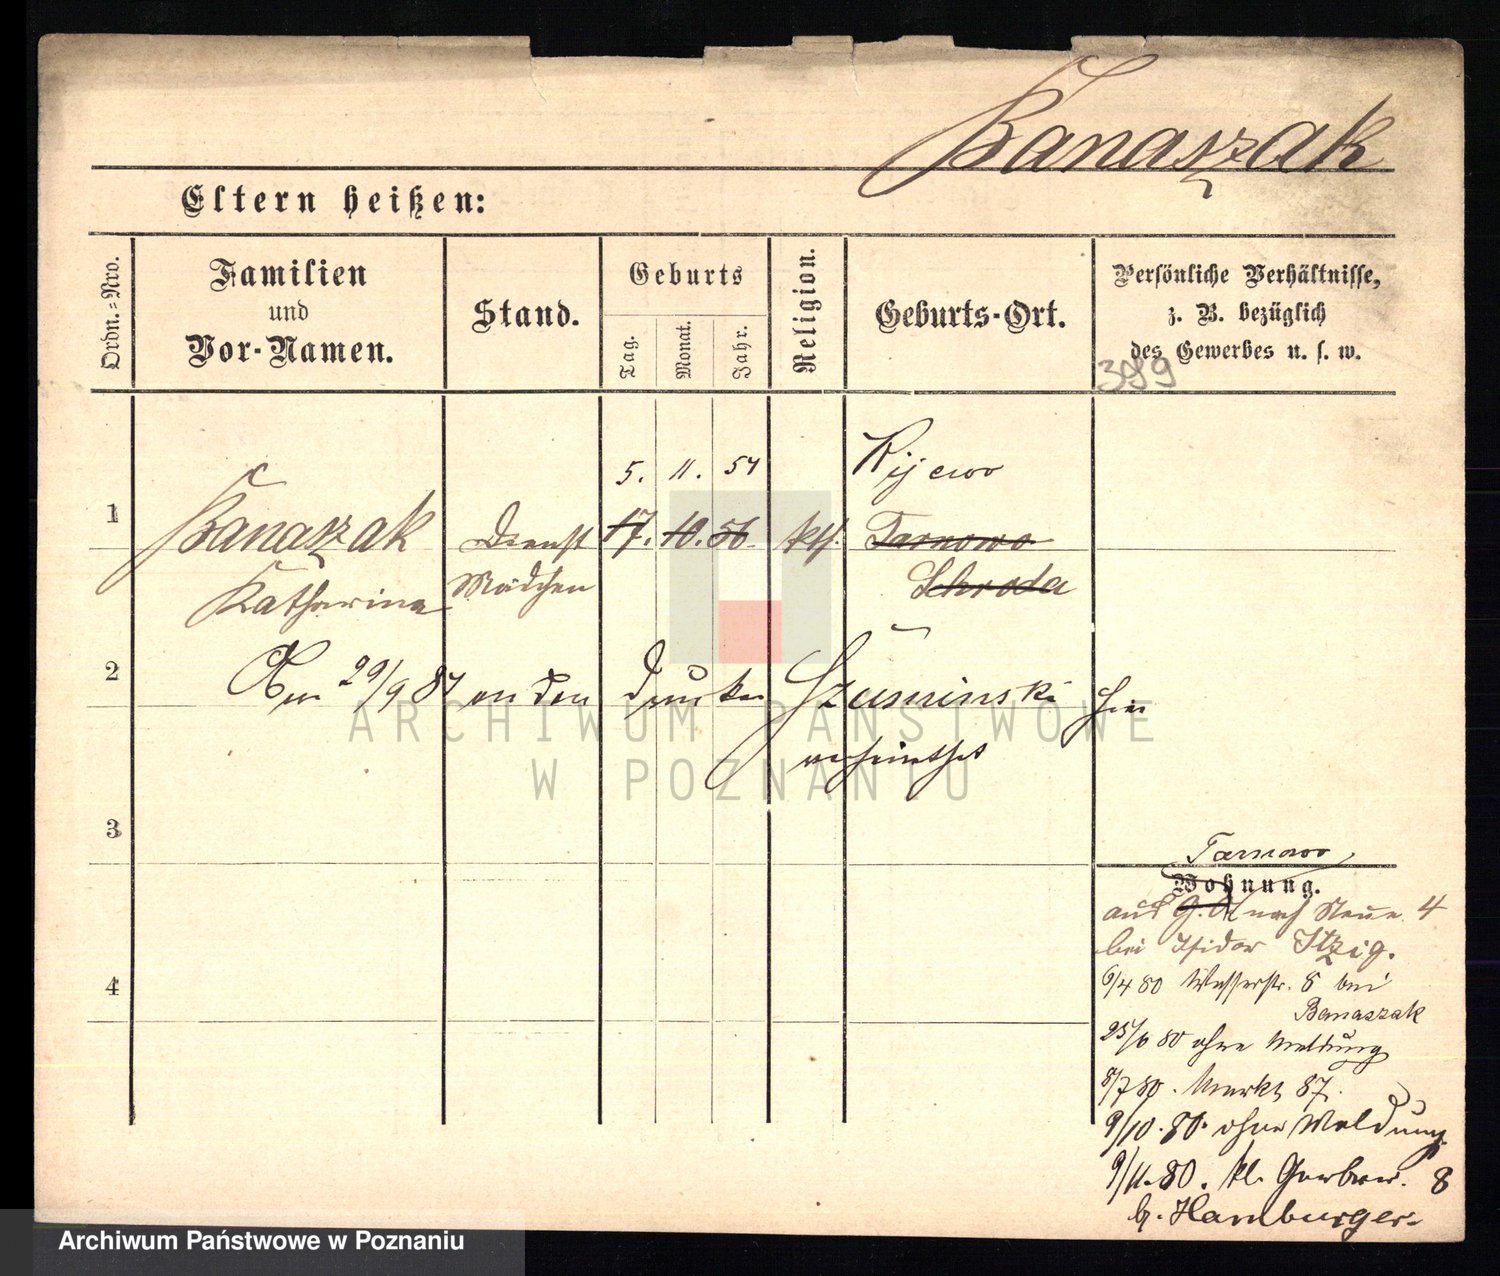 Banaszak
Eltern heißen:
Ordn.-Nro.
Familien
und
Vor-Namen.
Stand.
Geburts
Tag.
Monat.
Jahr.
Religion.
Geburts-Ort.
Persönliche Verhältnisse,
z. B. bezüglich
des Gewerbes u. s. w.
399
5. 11. 57 Kijewo
1 Banaszak Dienst 17. 10. 56. kth. Tarnowo
Katharina Mädchen Schroda
2 Am 29/9 87 an den Drucker hier
verheirathet
3
Tarnowo
Wohnung.
aus G. O nach Neue 4
bei Isidor Itzig.
4
6/4 80 Wasserstr. 8 bei
Banaszak
25/6 80 ohne Meldung
8/7 80. Markt 87.
9/10. 80. ohne Meldung
9/11. 80. kl. Gerberstr. 8
b. Hamburger
ARCHIWUM PAŃSTWOWE
W POZNANIU
Archiwum Państwowe w Poznaniu